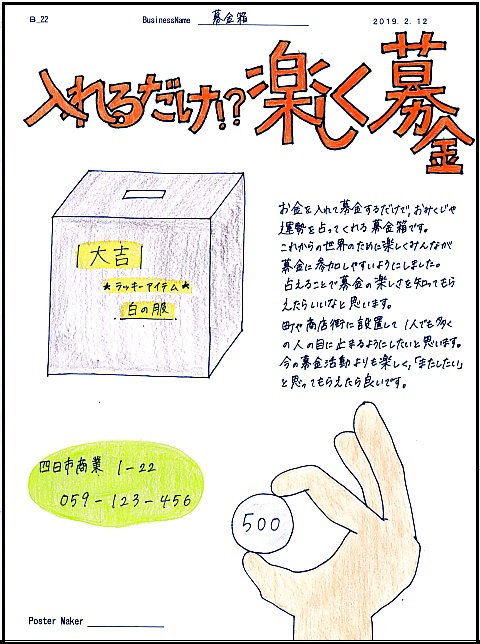 B_22
BusinessName 募金箱
2019. 2. 12
入れるだけ!?楽しく募金
大吉
*ラッキーアイテム*
白の服
お金を入れて募金するだけで、おみくじや
運勢を占ってくれる募金箱です。
これからの世界のために楽しくみんなが
募金に参加しやすいようにしました。
占えることで募金の楽しさを知ってもら
えたらいいなと思います。
町や商店街に設置して1人でも多く
の人の目に止まるようにしたいと思います。
今の募金活動よりも楽しく、「またしたい」
と思ってもらえたら良いです。
四日市商業 1-22
059-123-456
500
Poster Maker